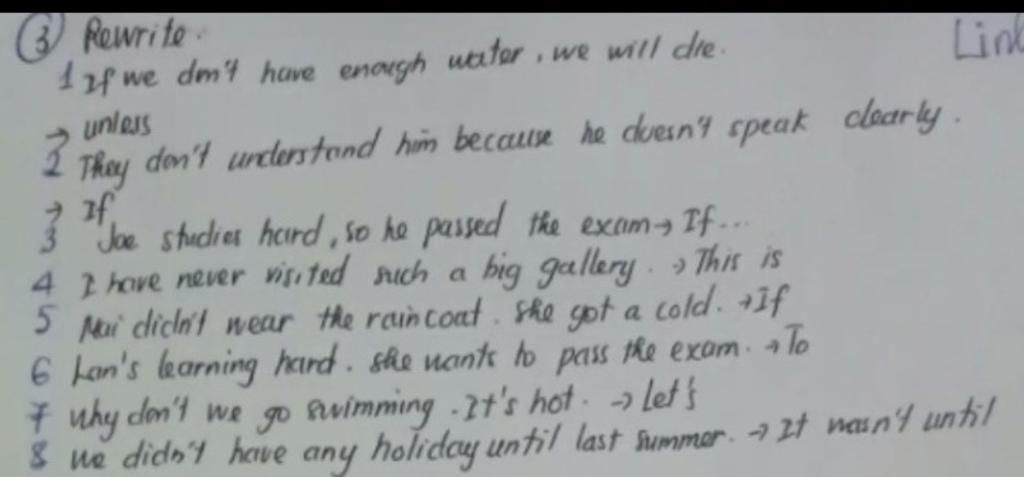 ③ Rewrite.
Link
1 If we don't have enough water, we will die.
→ unless
2 They don't understand him because he doesn't speak clearly.
→ If
3 Joe studies hard, so he passed the exam → If...
4 I have never visited such a big gallery. → This is
5 Mai didn't wear the raincoat. She got a cold. → If
6 Lan's learning hard. She wants to pass the exam. → To
7 Why don't we go swimming. It's hot. → Let's
8 We didn't have any holiday until last summer. → It wasn't until